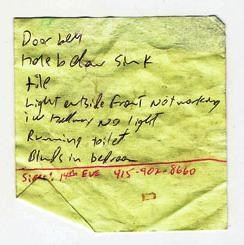 Door bell
hole below sink
tile
Light outside front not working
in hallway no light
Running toilet
Blinds in bedroom
14th Eve 415-902-8660